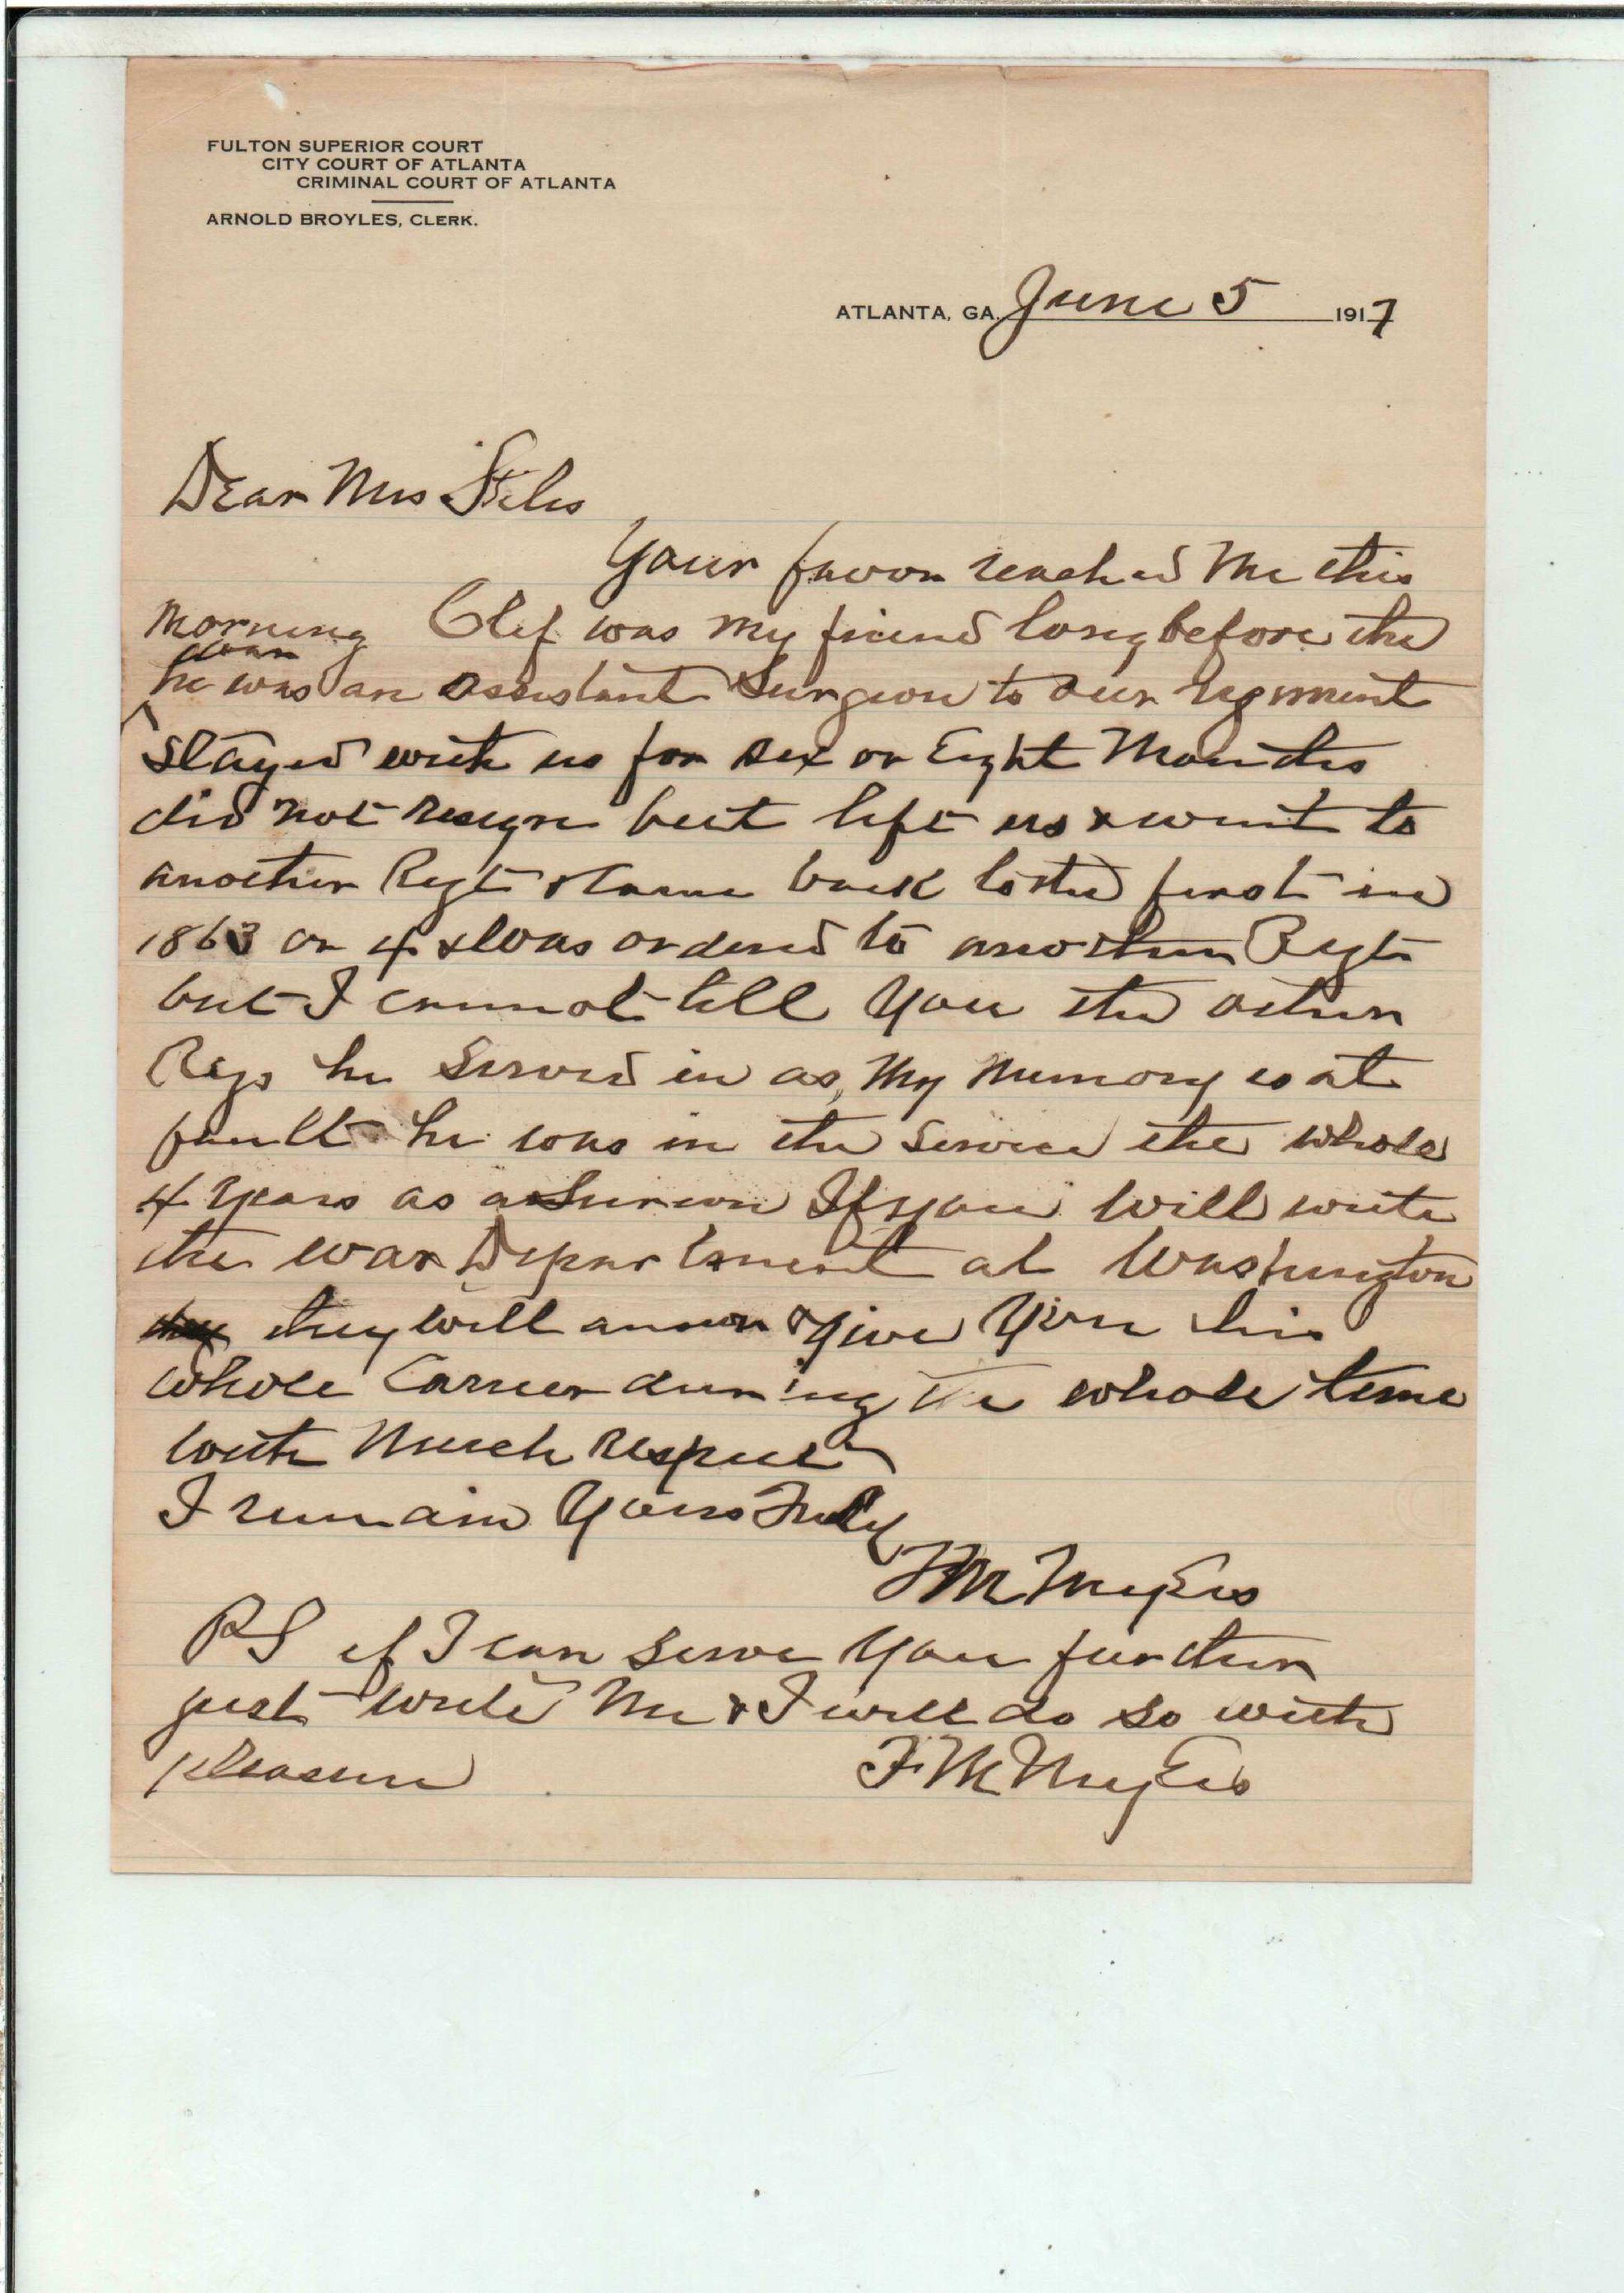 FULTON SUPERIOR COURT
CITY COURT OF ATLANTA
CRIMINAL COURT OF ATLANTA
ARNOLD BROYLES, CLERK.
ATLANTA, GA. June 5 1917
Dear Mrs Stiles
Your favor reached me this
morning Clif was my friend long before the
war
he was an assistant Surgeon to our regiment
stayed with us for six or Eight Months
did not resign but left us & went to
another Regt & came back to the first in
1863 or 4 & was ordered to another Regt
but I cannot tell you the other
Regs he served in as, my memory is at
fault he was in the service the whole
4 years as a Sureon If you will write
the war Department at Washington
they will answr & give you his
whole Carreer during the whole time
with much respect
I remain Yours Truly
F M Myers
PS if I can serve you further
just write me & I will do so with
pleasure F. M Myers